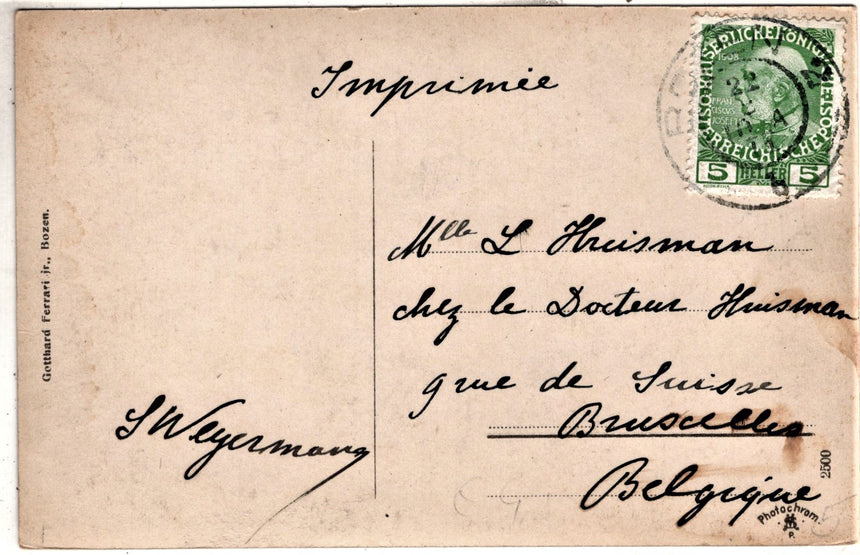 Imprimée
KAISERLICHE KÖNIGLICHE
ÖSTERREICHISCHE POST
1908
FRAN
CISCVS
JOSEPH I
5 HELLER 5
BOZEN 2
22
11
b
Mlle L Huisman
chez le Docteur Huisman
9 rue de Suisse
Bruxelles
Belgique
S Weyermang
Gotthard Ferrari jr., Bozen.
2500
Photochrom.
P.